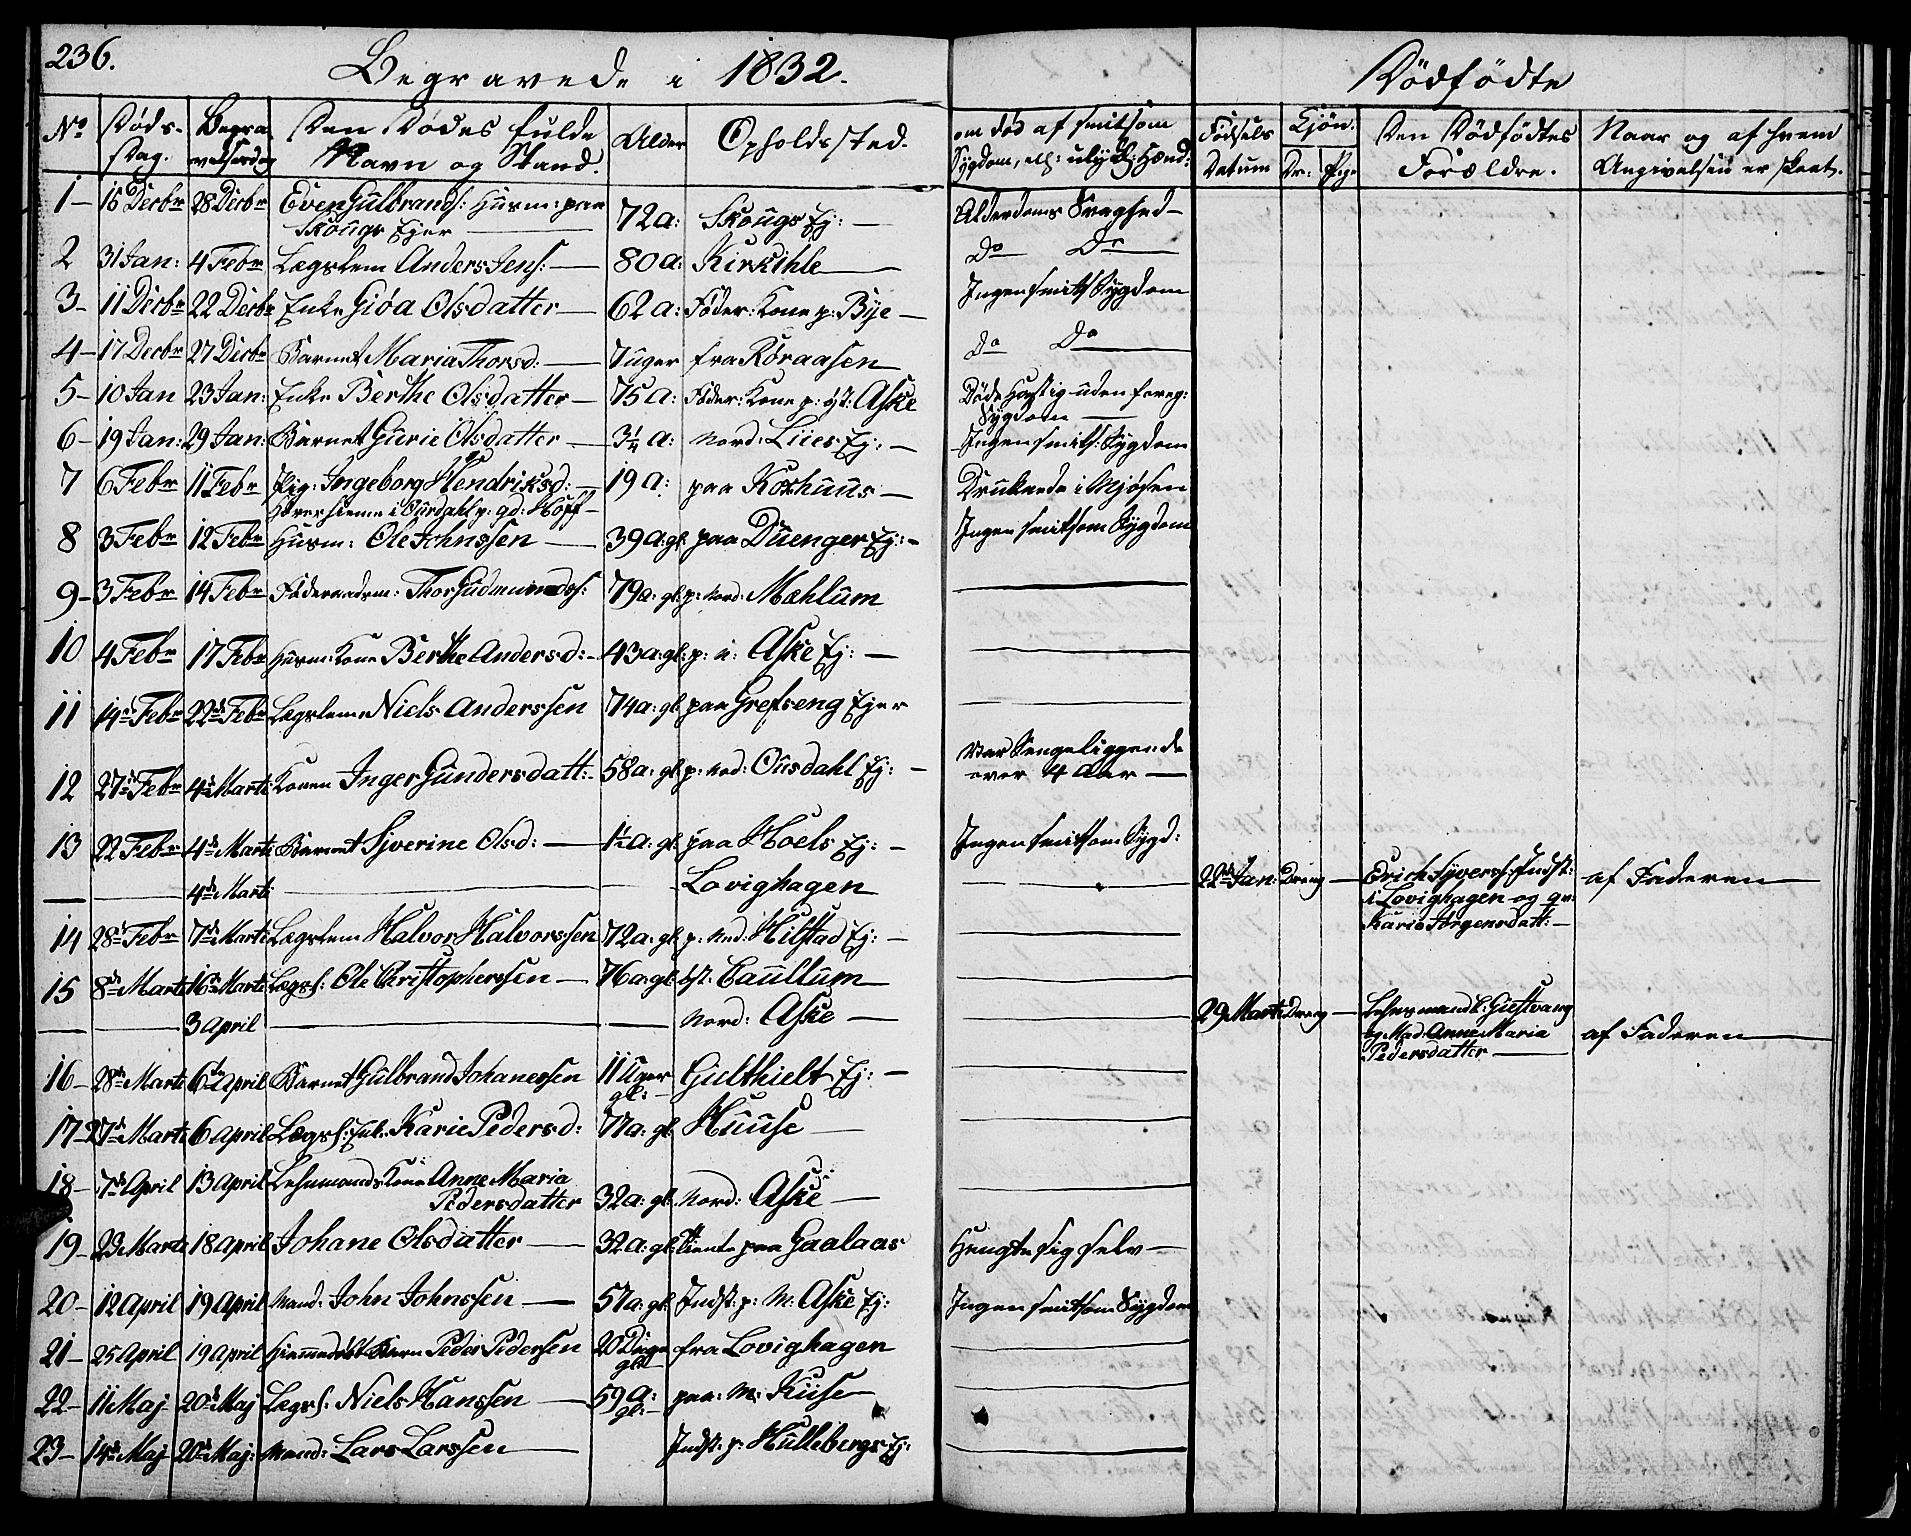 236.
Begravede i 1832.
Dödfödte
No Døds-Dag. Begravelsesdag Den Dødes fulde Navn og Stand. Alder Opholdssted. om død af smitsom Sygdom, ell: ulykk: Hænd: Fødsels Datum Kjøn. Dr: Pige Den Dödfödtes Forældre. Naar og af hvem Angivelsen er skeet.
1 - 16 Decbr 28 Decbr Even Gulbrands: Husm: paa Skougs Ejer 72 a: Skougs Ej: - Alderdoms Svaghed -
2 31 Jan: 4 Febr Lægslem Anders Jens: - 80 a: Kirkihle - Do Do
3 - 11 Decbr 22 Decbr Enke Giøa Olsdatter - 62 a: Föder: Kone p: Bye - Ingen smits: Sygdom
4 - 17 Decbr 27 Decbr Barnet Maria Thorsd: - 7 uger fra Röraasen Do Do
5 - 10 Jan 23 Jan: Enke Berthe Olsdatter - 75 a: Föder: Kone p: öst: Aske Döde hastig uden foreg: Sygdom -
6 - 19 Jan: 29 Jan: Barnet Gurie Olsdatter - 3¼ a: Nord: Lies Ej: - Ingen smits: Sygdom
7 6 Febr 11 Febr Pig: Ingeborg Hendriksd: - 19 a: paa Korhuus - Druknede i Mjøsen
i Ourdahl p: gd: Hoff -
8 3 Febr 12 Febr Husm: Ole Johnssen - 39 a: gl: paa Duenger Ej: - Ingen smitsom Sygdom
9 - 3 Febr 14 Febr Föderaadsm: Thor Gudmunds: 79 a: gl: p: Nord: Mæhlum -
10 4 Febr 17 Febr Husm: Kone Berthe Andersd: - 43 a: gl: p: n: Aske Ej: -
11 14de Febr 22de Febr Lægslem Niels Anderssen 74 a: gl: paa Grefseng Ejer
12 27de Febr 4de Marti Konen Inger Gundersdatt: - 58 a: gl: p: ned: Ousdahl Ej: - Var Sengeliggende over 4 Aar -
13 22 Febr 4de Marti Barnet Syverine Olsd: - 1½ a: gl: paa Hoels Ej: - Ingen smitsom Sygd:
- 4de Marti - Lovighagen - 22de Jan: Dreng - Erich Syvers: Indst: i Lovighagen og qv: Karie Jörgensdatt: - af Faderen -
14 28de Febr 7de Marti Lægslem Halvor Halvorssen 72 a: gl: p: Ned: Hilstad Ej: -
15 8de Marti 16de Marti Lægsl: Ole Christophersen - 76 a: gl: öst: Caullum
- 3 April - Nord: Aske - 29 Marti Dreng - Lehnsmand C: Gieftvang og Mad: Anne Maria Pedersdatter - af Faderen -
16 - 28de Marti 6te April Barnet Gulbrand Johanessen 11 Uger gl: - Gulthielt Ej: -
17 - 27de Marti 6 April Lægsl: Enk: Karie Pedersd: 77 a: gl: Huuse -
18 - 7de April 13 April Lehnmands Kone Anne Maria Pedersdatter 32 a: gl: Nord: Aske -
19 - 23 Marti 18 April Johane Olsdatter - 32 a: gl: tiente paa Gaalaas Hengte sig selv -
20 - 12 April 19 April Mand: John Johnssen - 57 a: gl: Indst: p: N: Aske Ej: Ingen smitsom Sygdom
21 - 25 April 19 April Hiemmedöbt Barn Peder Pedersen 20 Dage gl: fra Lovighagen
22 - 11 Maj 20de Maj Lægsl: Niels Hanssen - 59 a: gl: - paa: N: Kiise -
23 - 14de Maj 20de Maj: Mand: Lars Larssen - Indst: p: Hullebergs Ej: